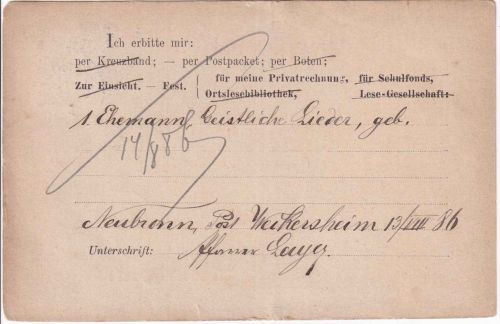 Ich erbitte mir:
per Kreuzband; — per Postpacket; per Boten;
Zur Einsicht. — Fest. { für meine Privatrechnung, für Schulfonds,
Ortslesebibliothek, Lese-Gesellschaft:
1. Ehemann, Geistliche Lieder, geb.
14/8 86
Neubronn, Post Weikersheim 13/VIII 86
Unterschrift: Pfarrer